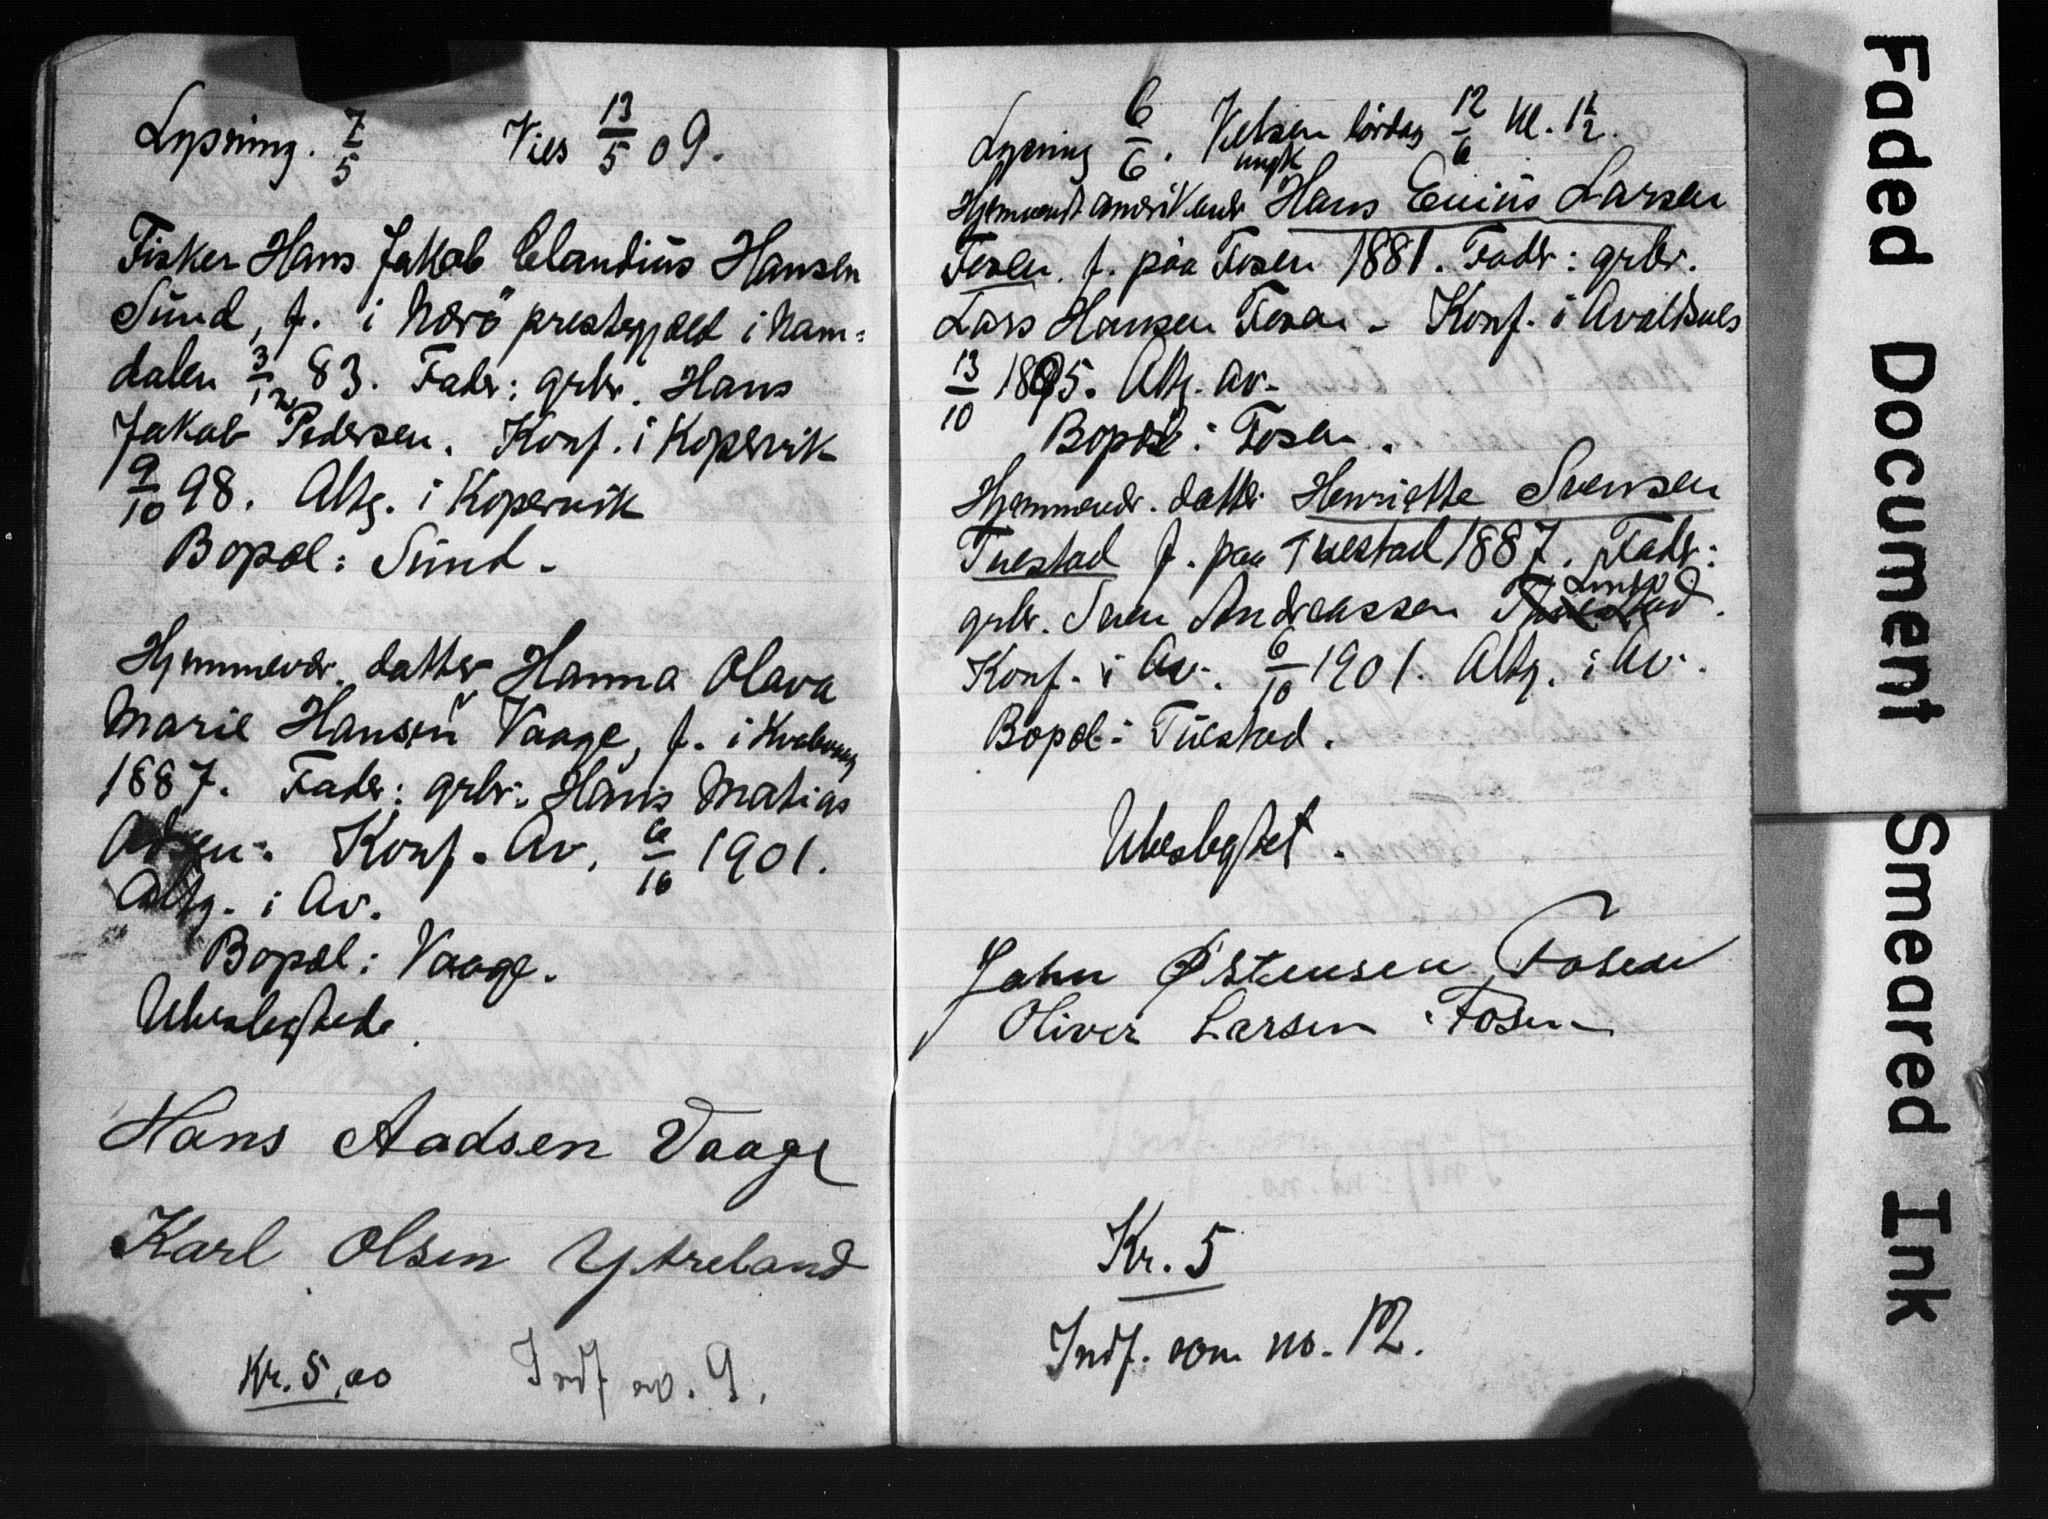 Lysning. 7/5 Vies 13/5 09.
Fisker Hans Jakob Claudius Hansen
Sund, f. i Nærö prestegjæld i Nam=
dalen 3/12 83. Fader: grbr. Hans
Jakob Pedersen. Konf. i Kopervik
9/10 98. Altg. i Kopervik
Bopæl: Sund.
Hjemmevær. datter Hanna Olava
Marie Hansen Vaage, f. i
1887. Fader: grbr. Hans Matias
Adsen. Konf. Av. 6/10 1901.
Altg. i Av.
Bopæl: Vaage.
Ubeslegtede.
Hans Aadsen Vaage
Karl Olsen Ytreland
Kr. 5,00 Indf no. 9.
Lysning 6/6. Vielsen lördag 12/6 kl. 1½.
ungk
Hjemvendt amerikaner Hans Larsen
Fosen. f. paa Fosen 1881. Fader: grbr.
Lars Hansen Fosen - Konf. i Avaldsnes
13/10 1895. Altg. Av.
Bopæl: Fosen.
Hjemmevær. datter Henriette Svensen
Tuestad f. paa Tuestad 1887. Fader:
grbr. Sven Andreassen
Konf. i Av. 6/10 1901. Altg. i Av.
Bopæl: Tuestad.
Ubeslegtet.
Jahn Østensen Fosen
Oliver Larsen Fosen
Kr. 5
Indf. som no. 12.
Faded Document
Smeared Ink